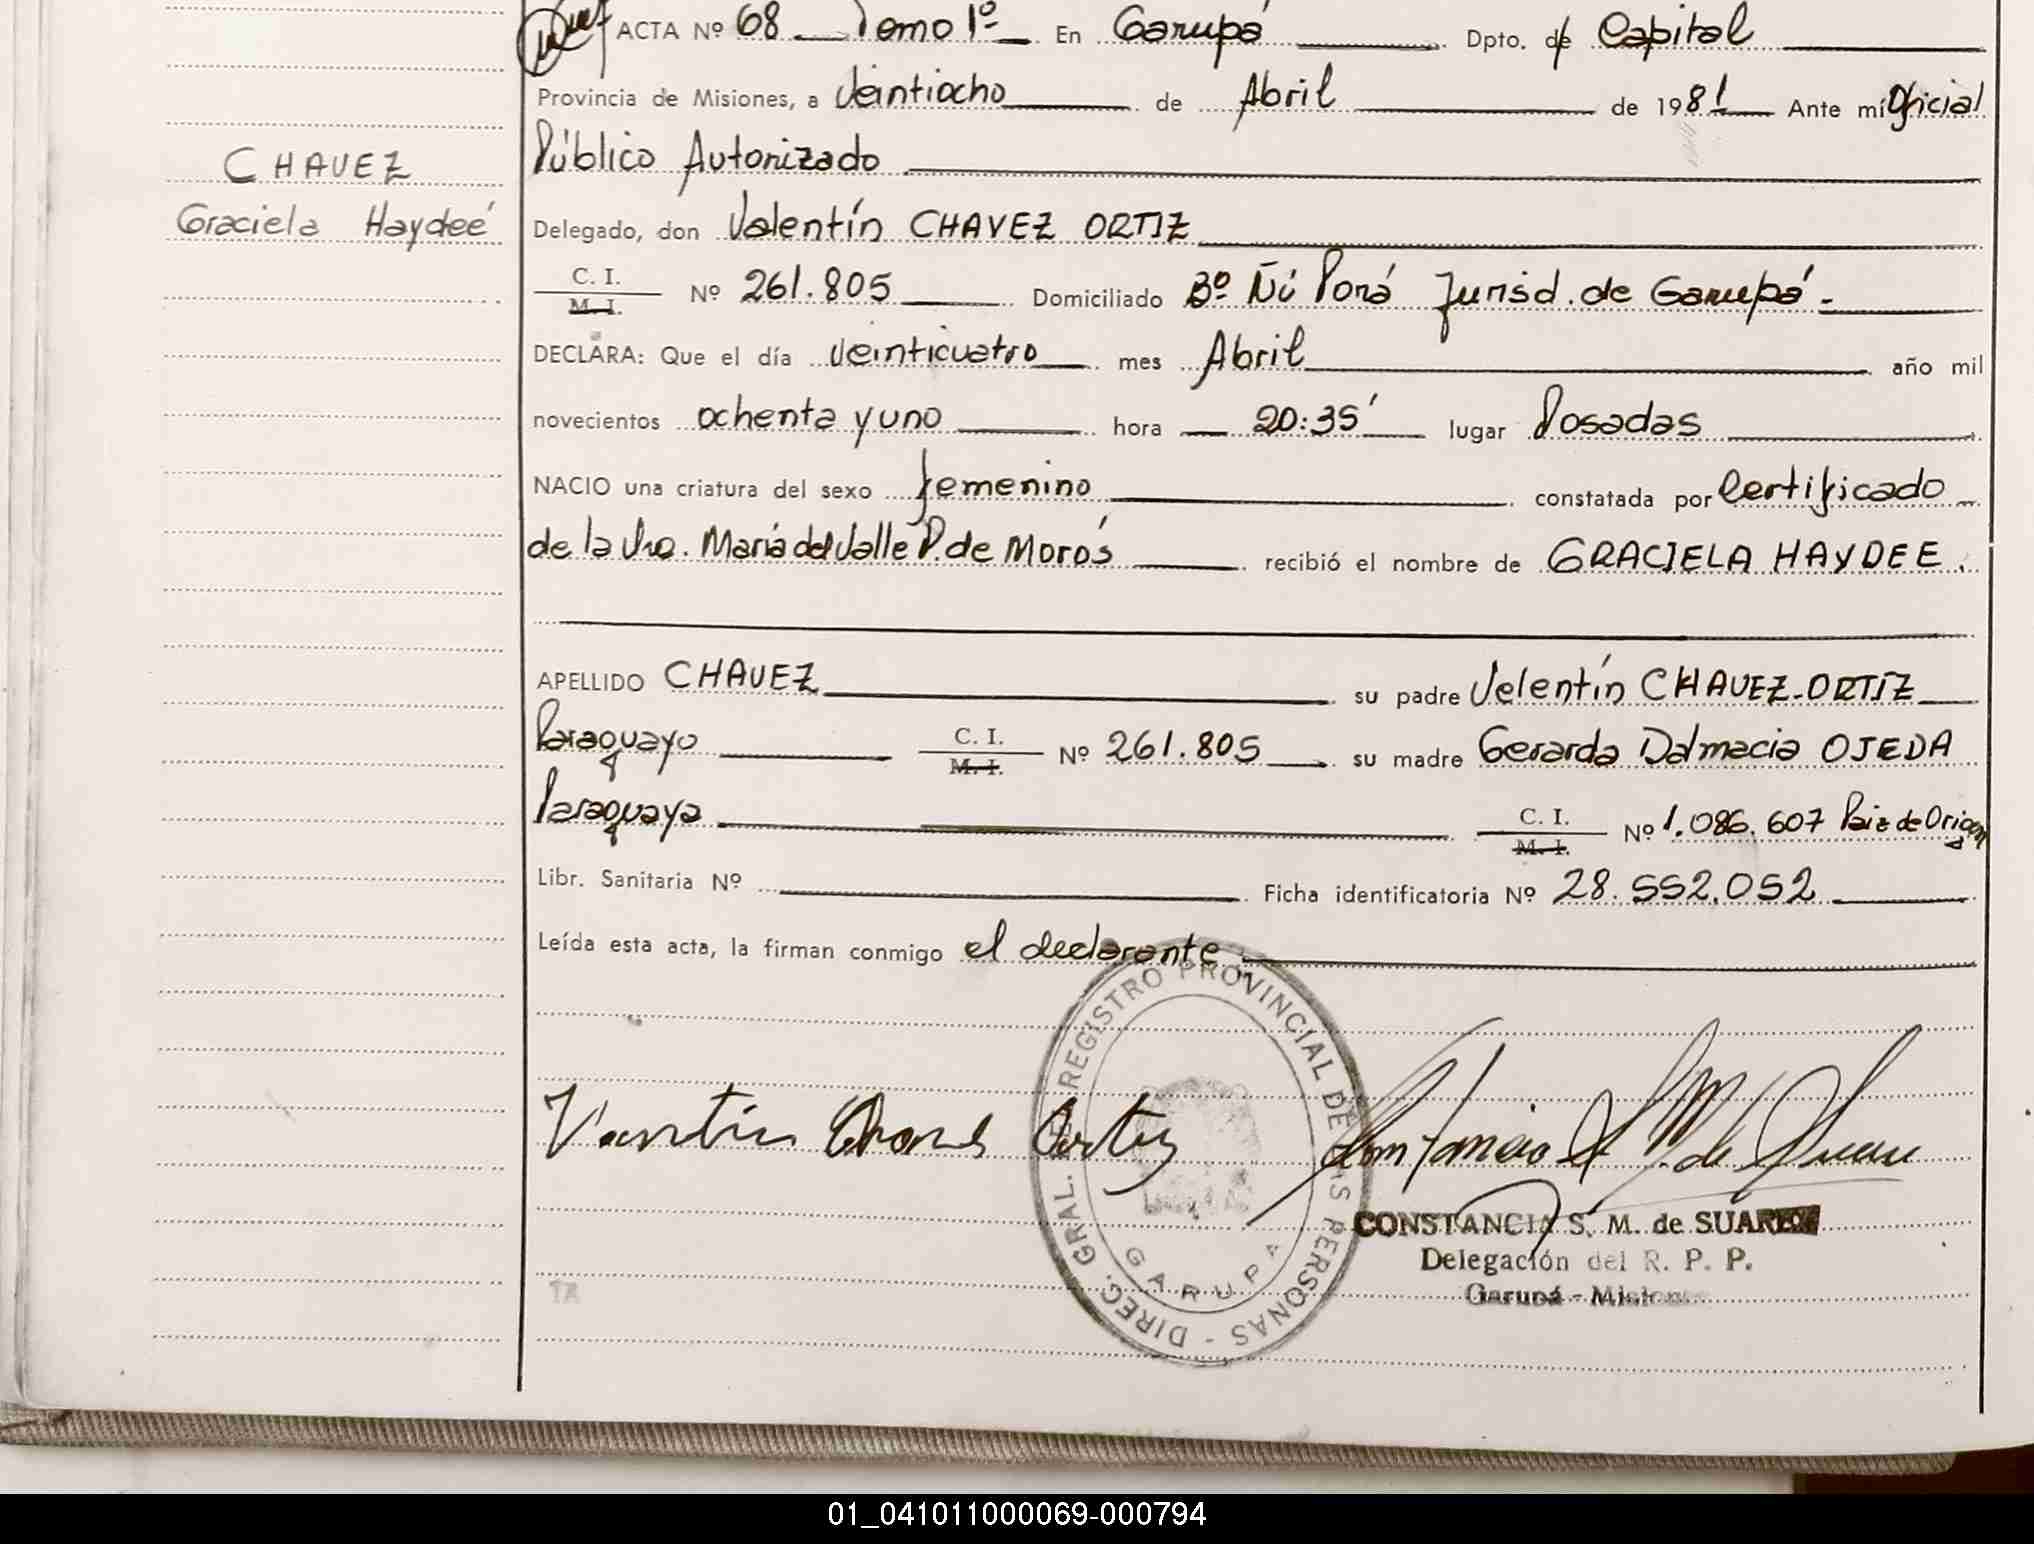 ACTA Nº 68 Tomo 1º En Garupá Dpto. de Capital
Provincia de Misiones, a Veintiocho de Abril de 1981 Ante mí Oficial
Público Autorizado
CHAVEZ
Graciela Haydeé
Delegado, don Valentín CHAVEZ ORTIZ
C. I.
M. I.
Nº 261.805 Domiciliado Bº Ñú Porá Jurisd. de Garupá.-
DECLARA: Que el día veinticuatro mes Abril año mil
novecientos ochenta y uno hora 20:35' lugar Posadas
NACIO una criatura del sexo femenino constatada por Certificado
de la Dra. María del Valle P. de Morós recibió el nombre de GRACIELA HAYDEE.
APELLIDO CHAVEZ su padre Valentín CHAVEZ-ORTÍZ
Paraguayo C. I. M. I. Nº 261.805 su madre Gerarda Dalmacia OJEDA
Paraguaya C. I. M. I. Nº 1.086.607 Paiz de Origen
Libr. Sanitaria Nº Ficha identificatoria Nº 28.552.052
Leída esta acta, la firman conmigo el declarante
DIREC. GRAL. REGISTRO PROVINCIAL DE PERSONAS -
GARUPA
CONSTANCIA S. M. de SUAREZ
Delegación del R. P. P.
Garupá - Misiones
01_041011000069-000794